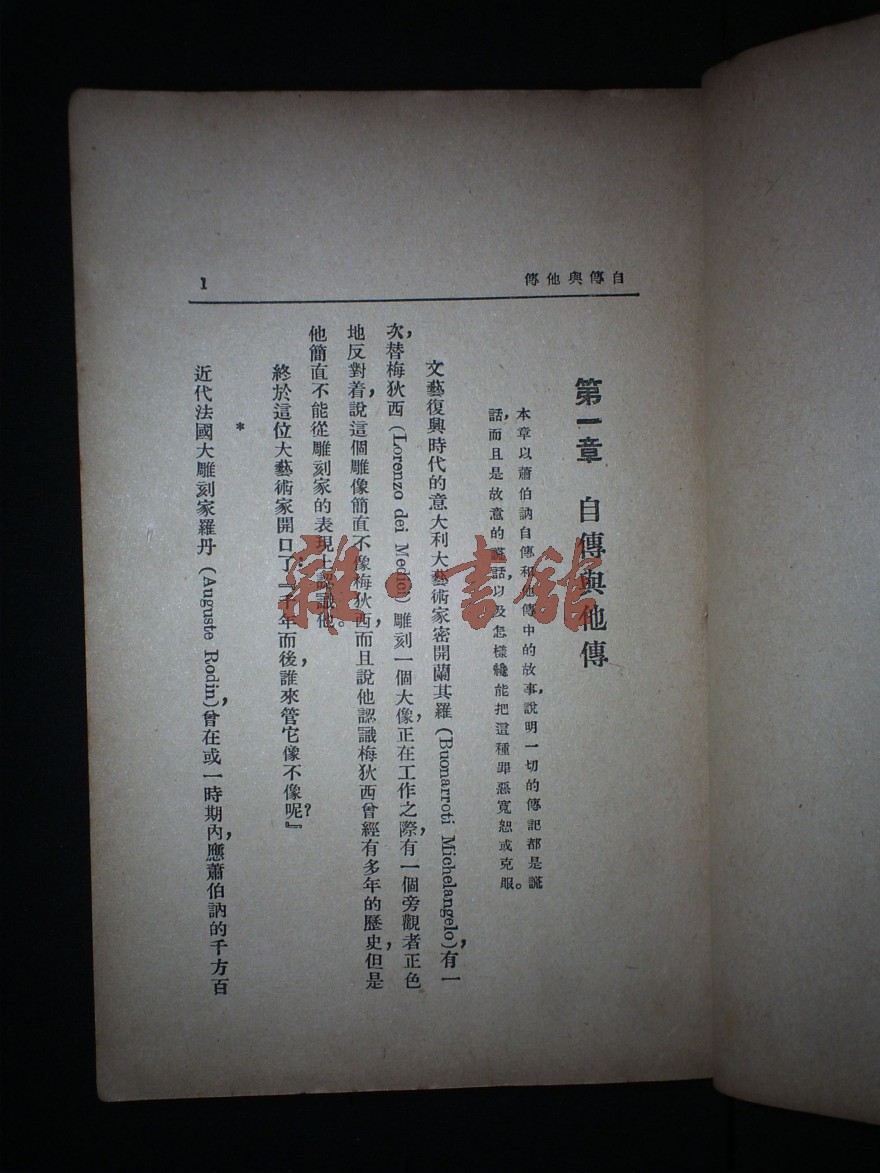 自傳與他傳
1
第一章 自傳與他傳
本章以蕭伯訥自傳和他傳中的故事，說明一切的傳記都是謊
話，而且是故意的謊話，以及怎樣纔能把這種罪惡寬恕或克服。
文藝復興時代的意大利大藝術家密開蘭其羅（Buonarroti Michelangelo），有一
次，替梅狄西（Lorenzo dei Medici）雕刻一個大像，正在工作之際，有一個旁觀者正色
地反對着說，這個雕像簡直不像梅狄西，而且說他認識梅狄西曾經有多年的歷史，但是
他簡直不能從雕刻家的表現上認識他。
終於這位大藝術家開口了：『千年而後，誰來管它像不像呢？』
*
近代法國大雕刻家羅丹（Auguste Rodin），曾在或一時期內，應蕭伯訥的千方百
雜·書館